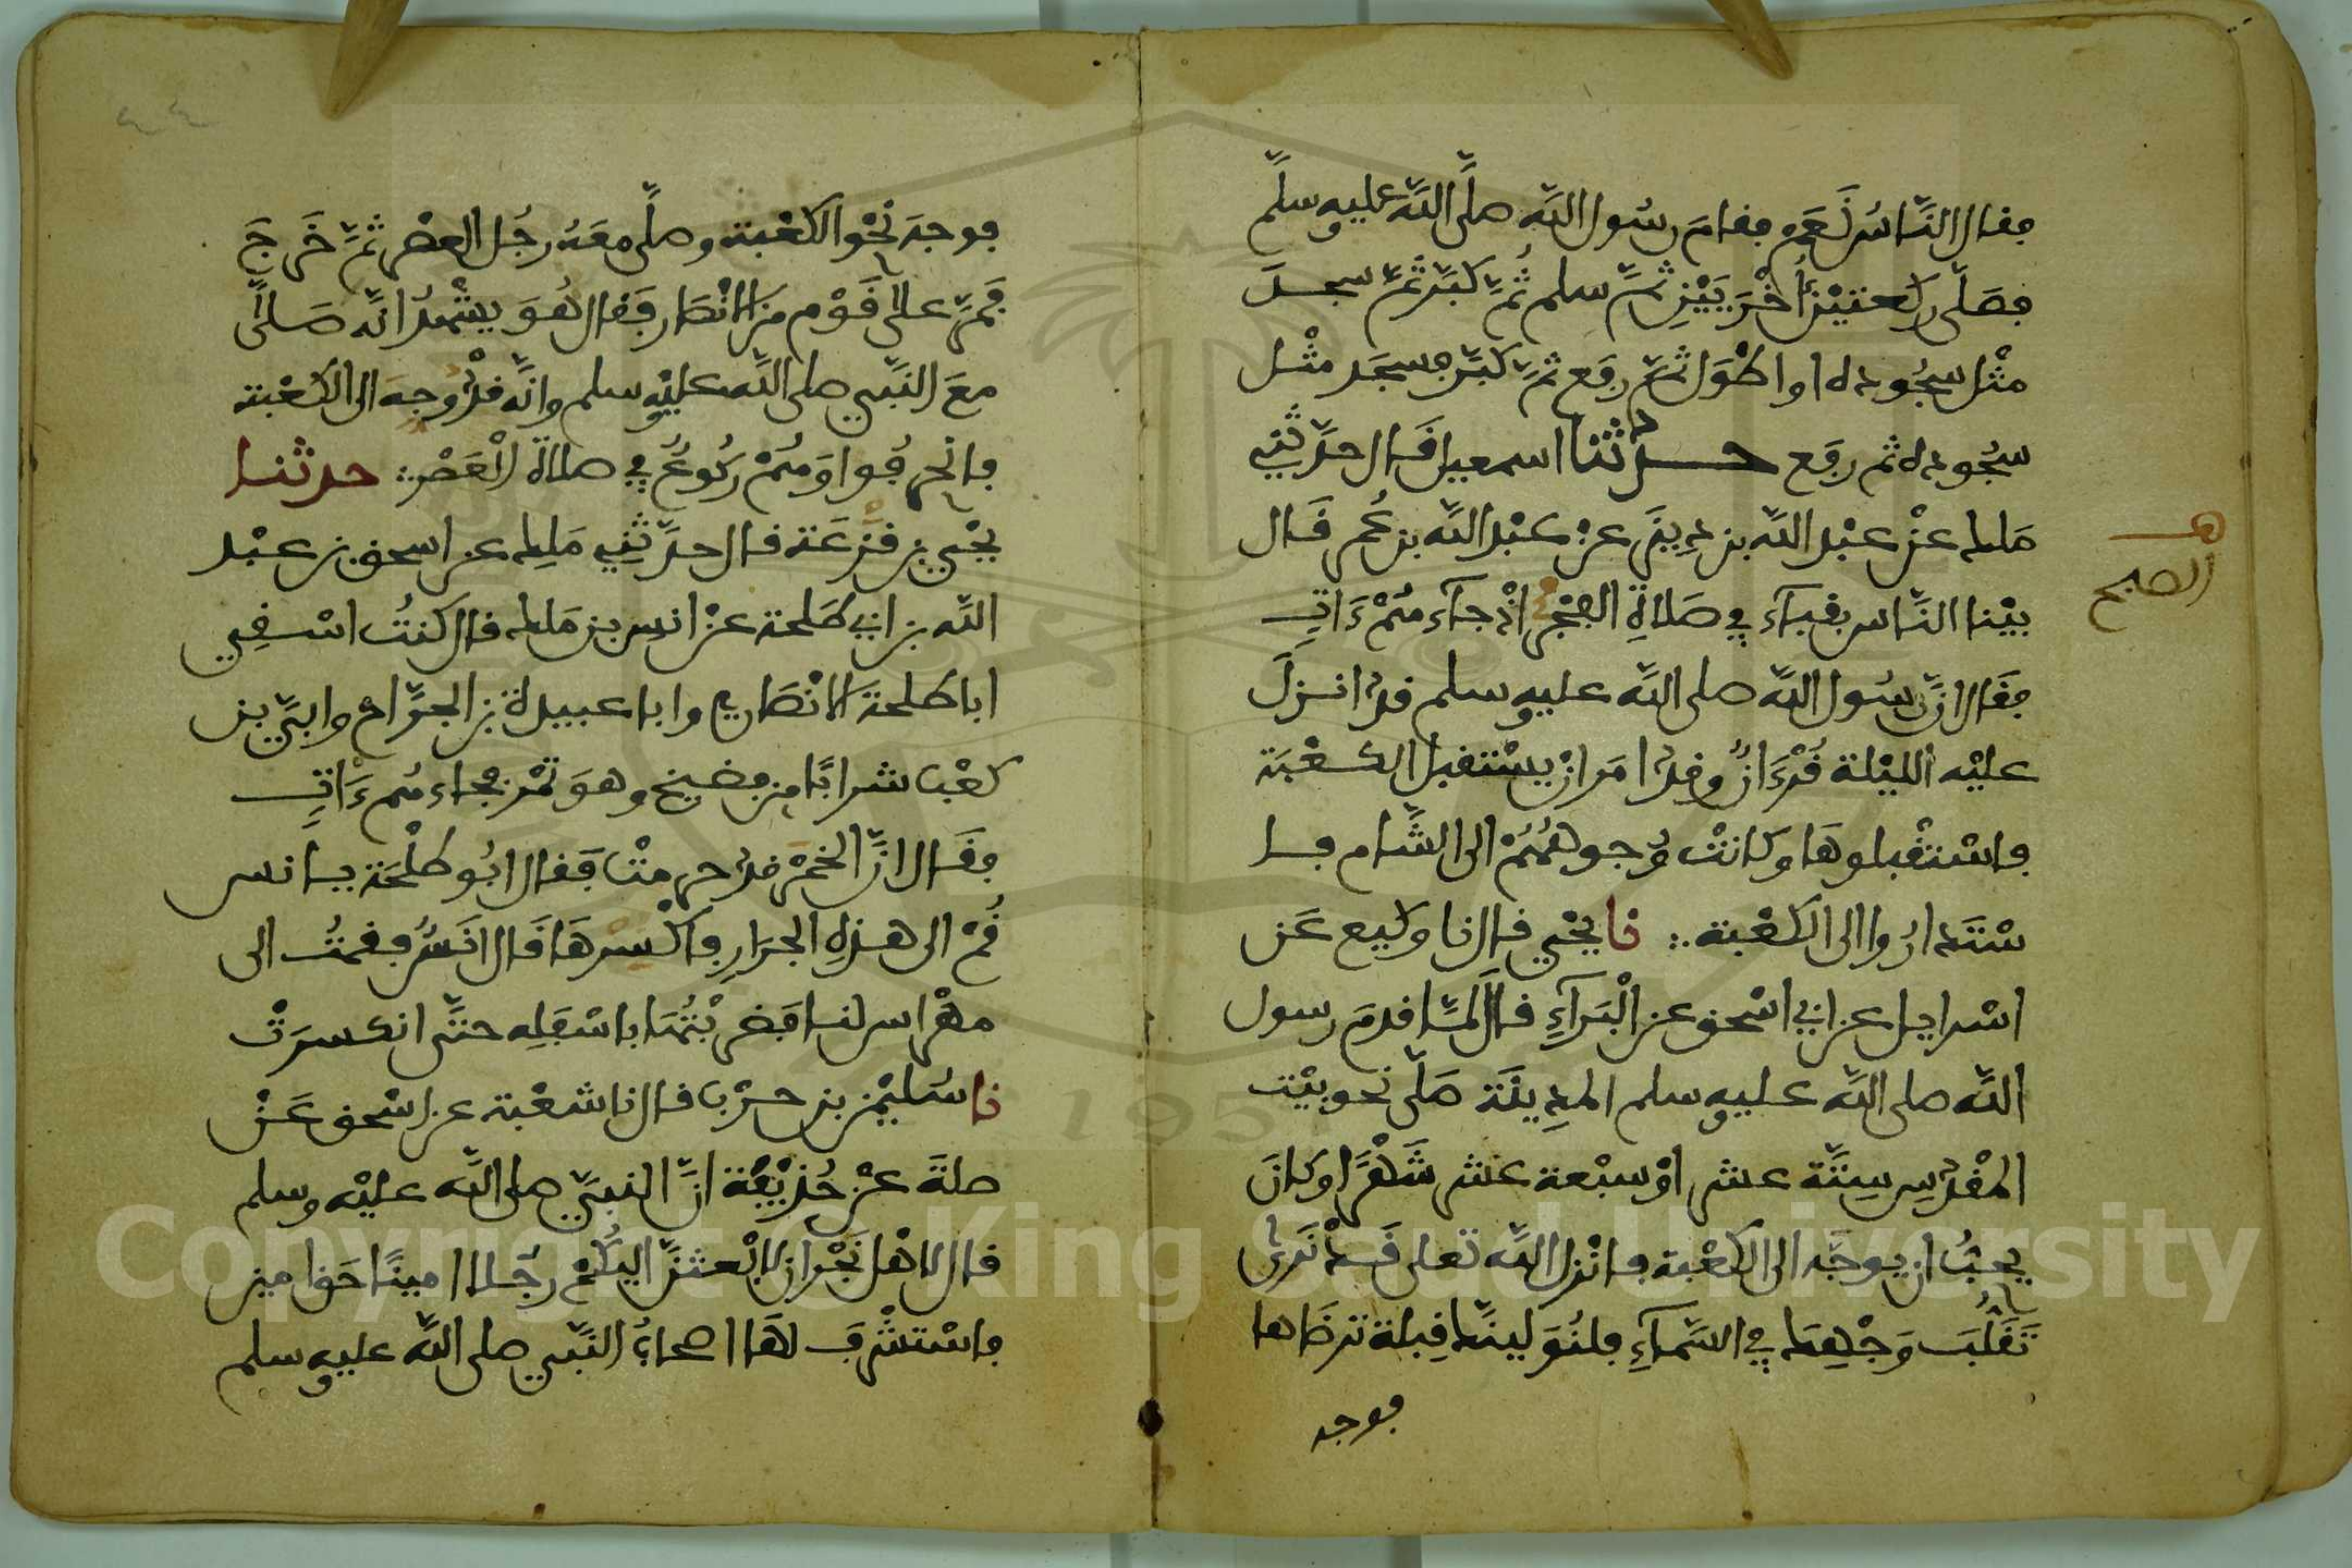 فقال النَّاسُ نَعَم فقامَ رسُول اللَّه صلَّى اللَّه عليه وسلَّم
فصَلَّى ركعتيْن أُخْرَيَيْنِ ثمَّ سلم ثُمَّ كبَّر ثمَّ سجد
مثْل سجُوده او اطْوَل ثمَّ رفع ثمَّ كبَّر وسجَد مثْل
سجُوده ثم رفع حدثنا اسمعيل قال حدَّثني
ملك عنْ عبْد اللَّه بن دينَر عنْ عبْد اللَّه بن عُمر قَال
بيْنا النَّاس بقبآء في صَلاةِ الفجْر اذْ جآء همْ ءَاتٍ
فقَال انَّ رسُول اللَّه صلى اللَّه عليه وسلم قد انزلَ
عليْه الليْلة قُرْءَانٌ وقد امَر انْ يسْتقبل الكعْبَة
فاسْتقْبلوهَا وكانتْ وُجوههُمْ الى الشَّام فا
سْتَداروا الى الكعْبة نا يحْيى قال نا وكيع عَن
اسْرايل عن ابي اسْحق عن الْبَرآءِ قال لمَّا قدمَ رسول
اللَّه صلى اللَّه عليه وسلم المدِينَة صَلَّى نحو بيْت
المقْدسِ سِتَّة عشر اوْ سبْعة عشر شَهْرًا وكانَ
يحبُّ ان يوجَّه الى الكعْبة فانْزل اللَّه تعلى قَدْ نَرَى
تَقَلُّبَ وَجْهِكَ في السَّمآءِ فلنُوَلينَّك قِبلة ترضَاها
فوجه
هـ
الصبح
فوجه نحْو الكعْبة وصلَّى معَه رجُل العصْر ثمَّ خَرجَ
فَمرَّ على قَوْم من الانْصَار فَقال هُوَ يشْهدُ انَّه صَلَّى
معَ النَّبي صلى اللَّه عليْه وسلم وانَّه قدْ وُجه الى الكعْبة
فانْحرفُوا وَهُمْ رُكُوعٌ في صلاة الْعَصْر حدثنا
يحْيى بن قَزَعَة قال حدَّثنِي مَلِك عن اسحق بن عبْد
اللَّه بن ابي طَلحة عنْ انس بن مَلك قال كنتُ اسْقِي
ابا طلحةَ الانْصَاري وابا عبيدة بن الجرَّاح وابيَّ بن
كعْب شرابًا من فضيخ وهوَ تمْر فجاءهُم ءَاتٍ
فقَال انَّ الخمْر قد حرمتْ فَقال ابُو طلْحَة يا انس
قُمْ الى هذهِ الجرَارِ فاكْسرْهَا قَال انَسٌ فقمتُ الى
مهْراس لنا فضربْتُها باسْفلِه حتَّى انكسرَتْ
نا سُليْمن بن حرْب قال نا شعْبة عن ابي اسْحق عَنْ
صلةَ عنْ حُذيْفة انَّ النبيَّ صلى اللَّه عليْه وسلم
قال لاهْل نَجْران لابْعثنَّ اليْكُمْ رجُلا امينًا حَق امين
فاسْتشْرف لهَا اصحابُ النَّبي صلى اللَّه عليه وسلم
٤٤
Copyright © King Saud University
195